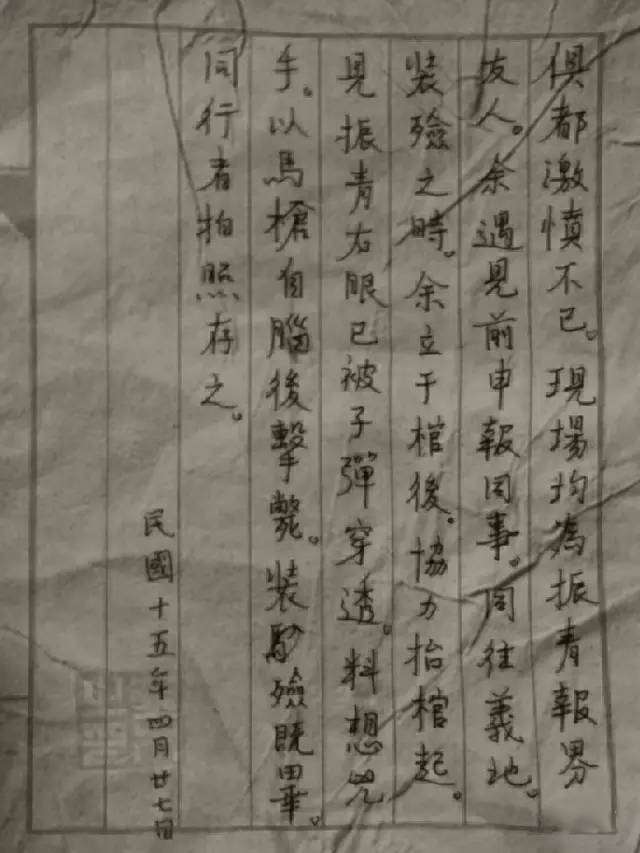 俱都激憤不已。現場均為振青報界
友人。余遇見前申報同事。同往義地。
裝殮之時。余立于棺後。協力抬棺起。
見振青右眼已被子彈穿透。料想兇
手。以馬槍自腦後擊斃。裝殮既畢。
同行者拍照存之。
民國十五年四月廿七日